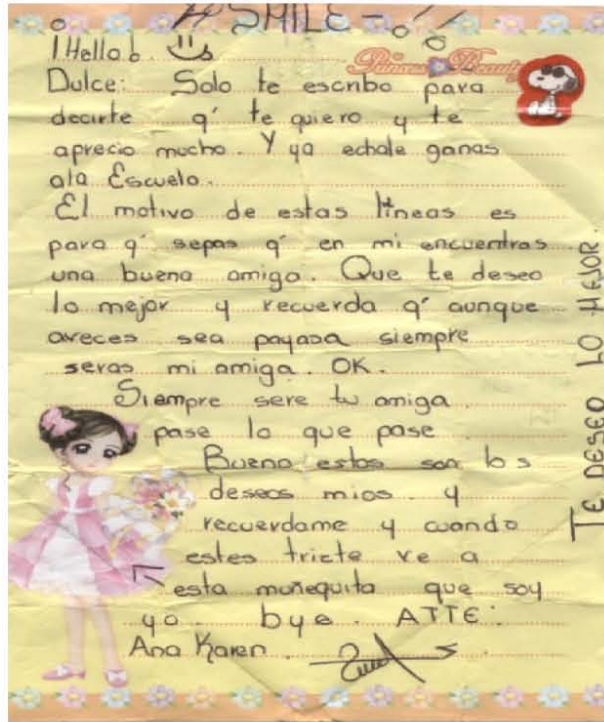 # SMILE -
¡Hello!
Princess Beauty
Dulce: Solo te escribo para
decirte q' te quiero y te
aprecio mucho. Y ya echale ganas
ala Escuela.
El motivo de estas líneas es
para q' sepas q' en mi encuentras
una buena amiga. Que te deseo
lo mejor y recuerda q' aunque
aveces sea payasa siempre
seras mi amiga. OK.
Siempre sere tu amiga
pase lo que pase
Bueno estos son los
deseos mios. y
recuerdame y cuando
estes triste ve a
esta muñequita que soy
yo. bye. ATTE:
Ana Karen.
TE DESEO LO MEJOR.